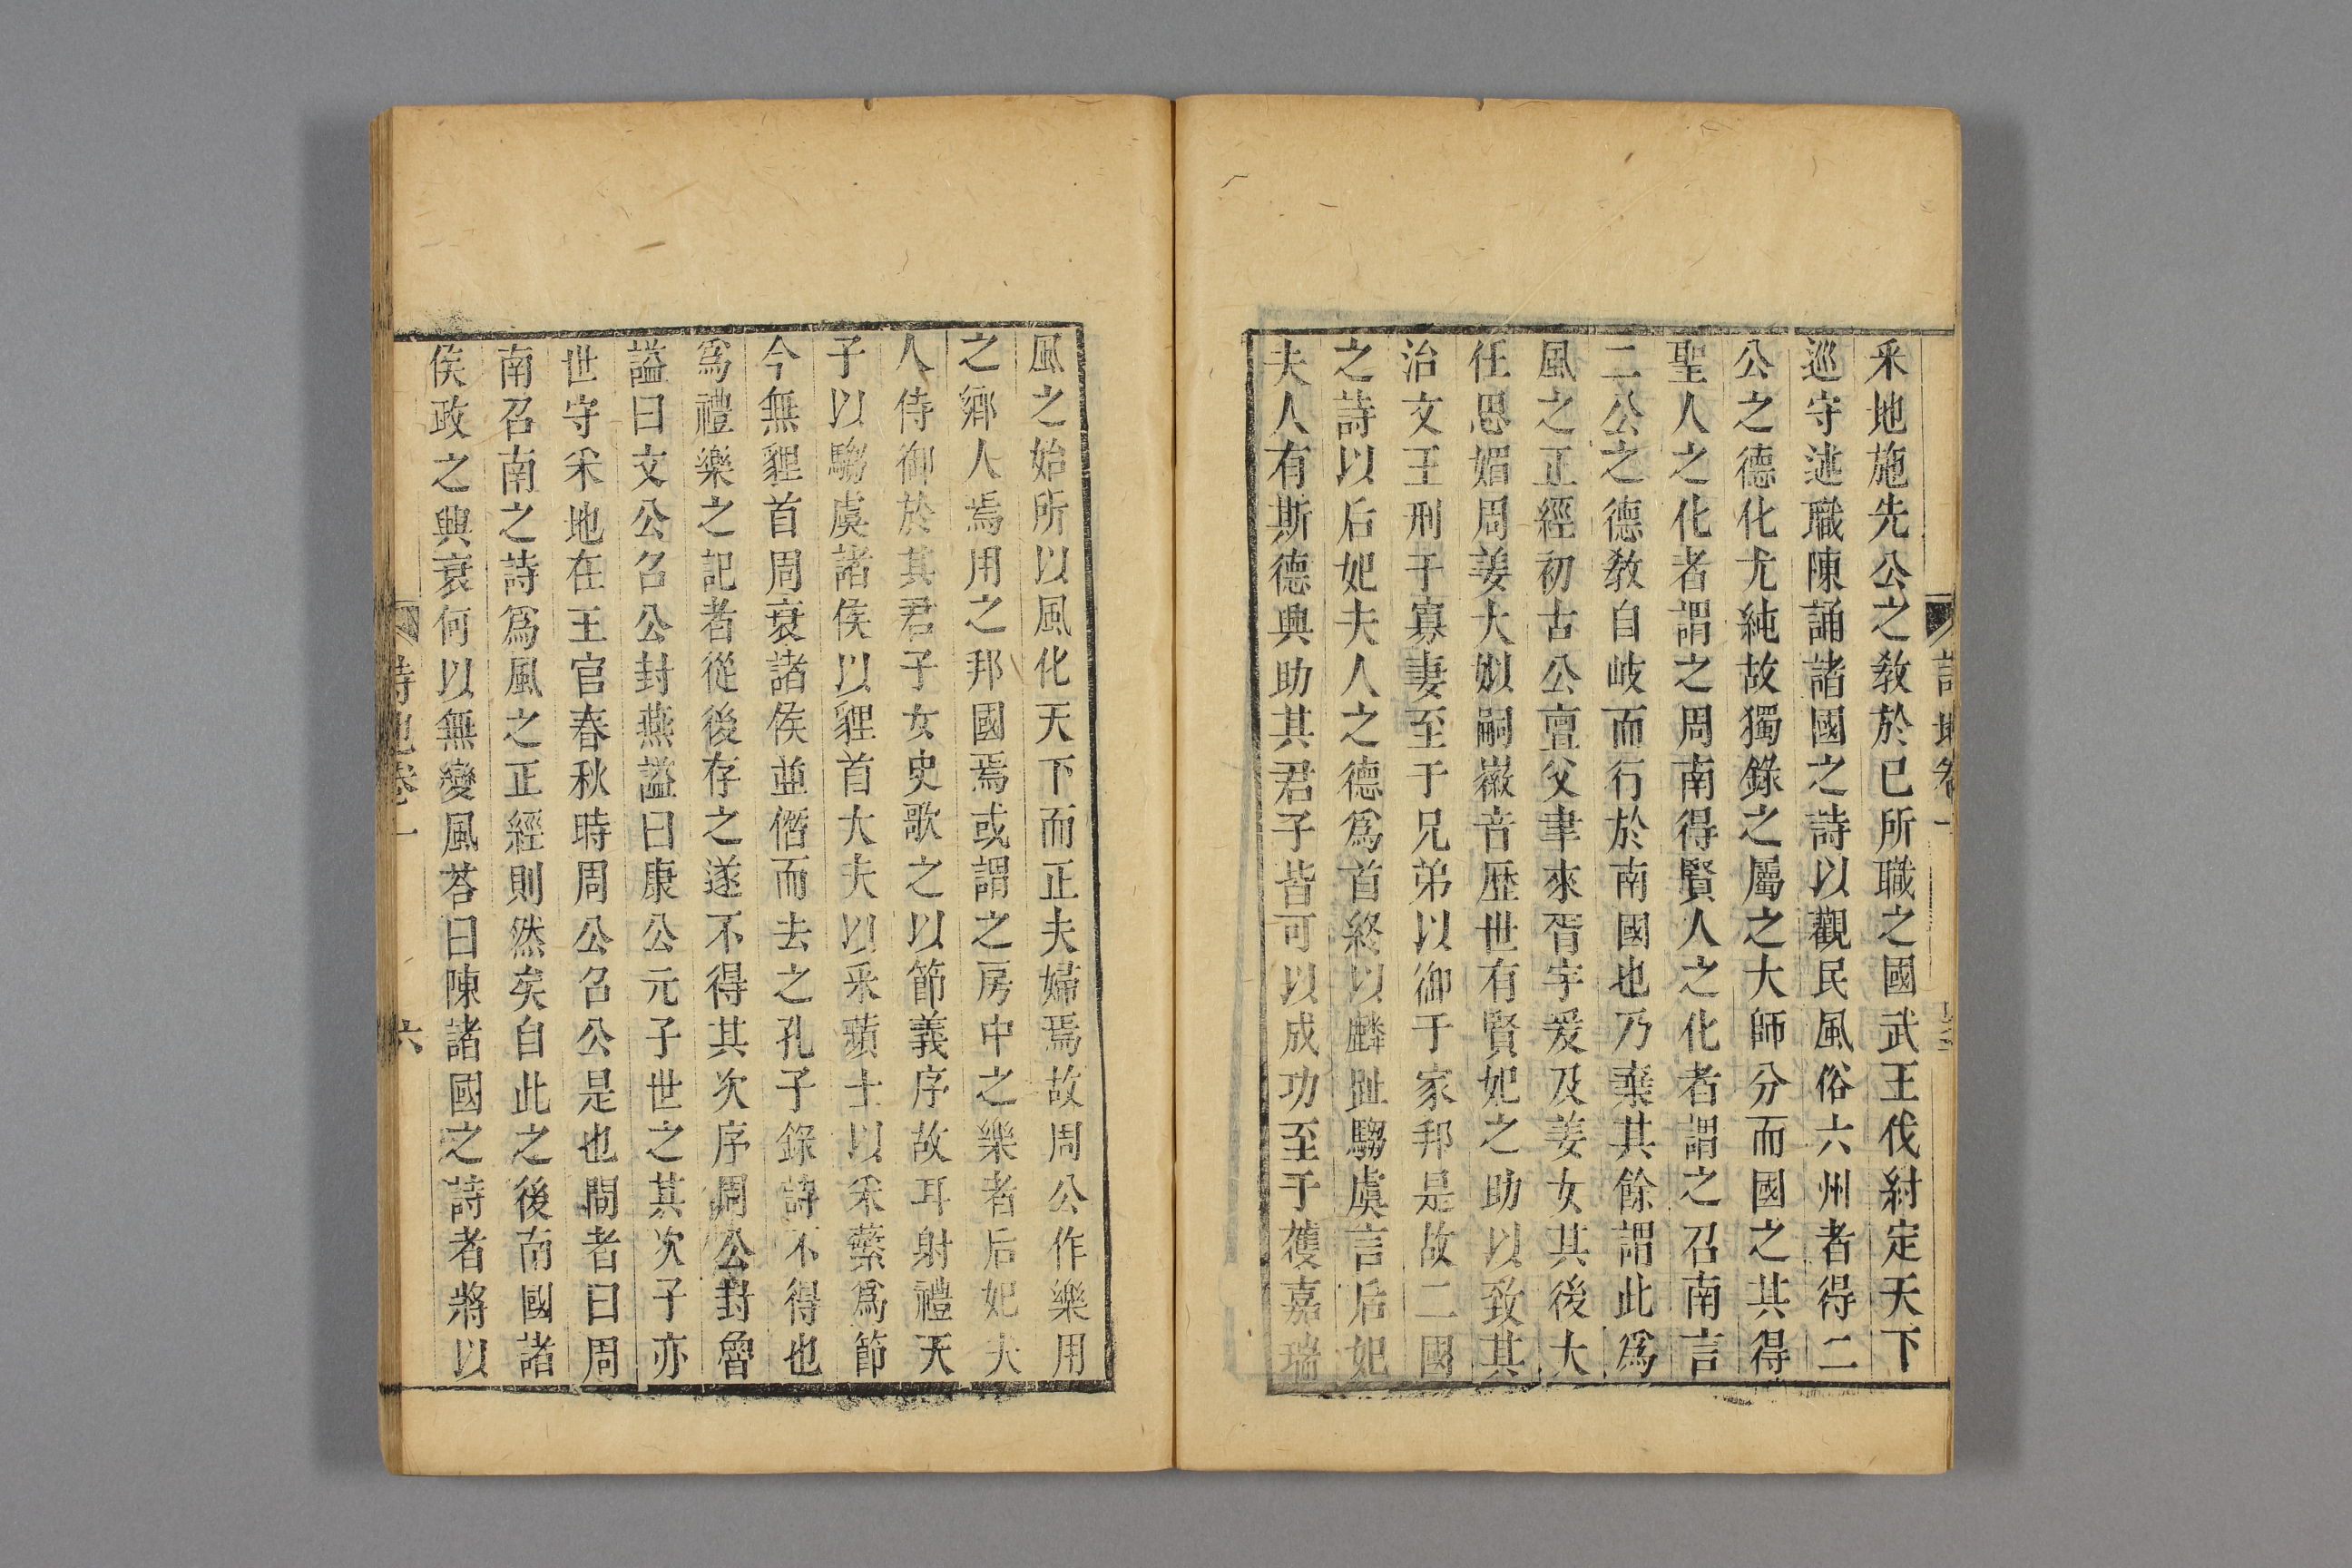 采地施先公之敎於已所職之國武王伐紂定天下
巡守述職陳誦諸國之詩以觀民風俗六州者得二
公之德化尤純故獨錄之屬之大師分而國之其得
聖人之化者謂之周南得賢人之化者謂之召南言
二公之德敎自岐而行於南國也乃棄其餘謂此爲
風之正經初古公亶父聿來胥宇爰及姜女其後大
任思媚周姜大姒嗣徽音歷世有賢妃之助以致其
治文王刑于寡妻至于兄弟以御于家邦是故二國
之詩以后妃夫人之德爲首終以麟趾騶虞言后妃
夫人有斯德興助其君子皆可以成功至于獲嘉瑞
風之始所以風化天下而正夫婦焉故周公作樂用
之鄉人焉用之邦國焉或謂之房中之樂者后妃夫
人侍御於其君子女史歌之以節義序故耳射禮天
子以騶虞諸侯以貍首大夫以采蘋士以采蘩爲節
今無貍首周衰諸侯並僭而去之孔子錄詩不得也
爲禮樂之記者從後存之遂不得其次序周公封魯
謚曰文公召公封燕謚曰康公元子世之其次子亦
世守采地在王官春秋時周公召公是也問者曰周
南召南之詩爲風之正經則然矣自此之後南國諸
侯政之興衰何以無變風荅曰陳諸國之詩者將以
詩地卷一
六